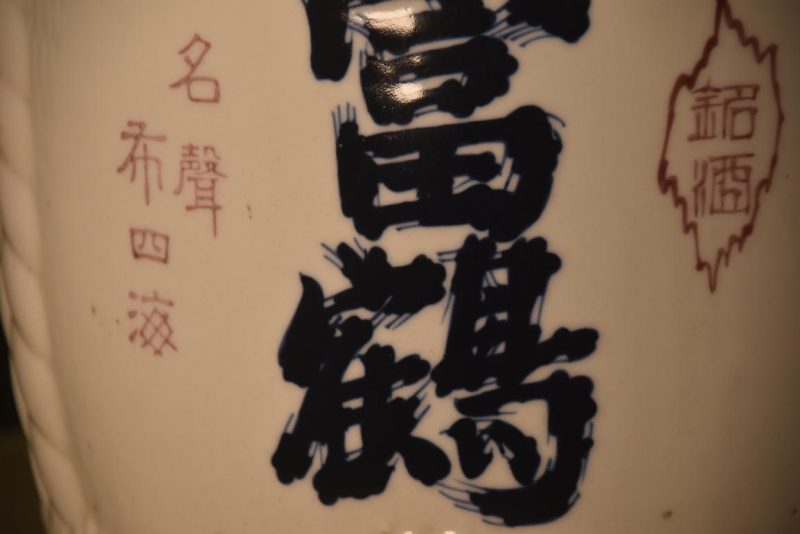 銘酒
富鶴
名聲
布四海